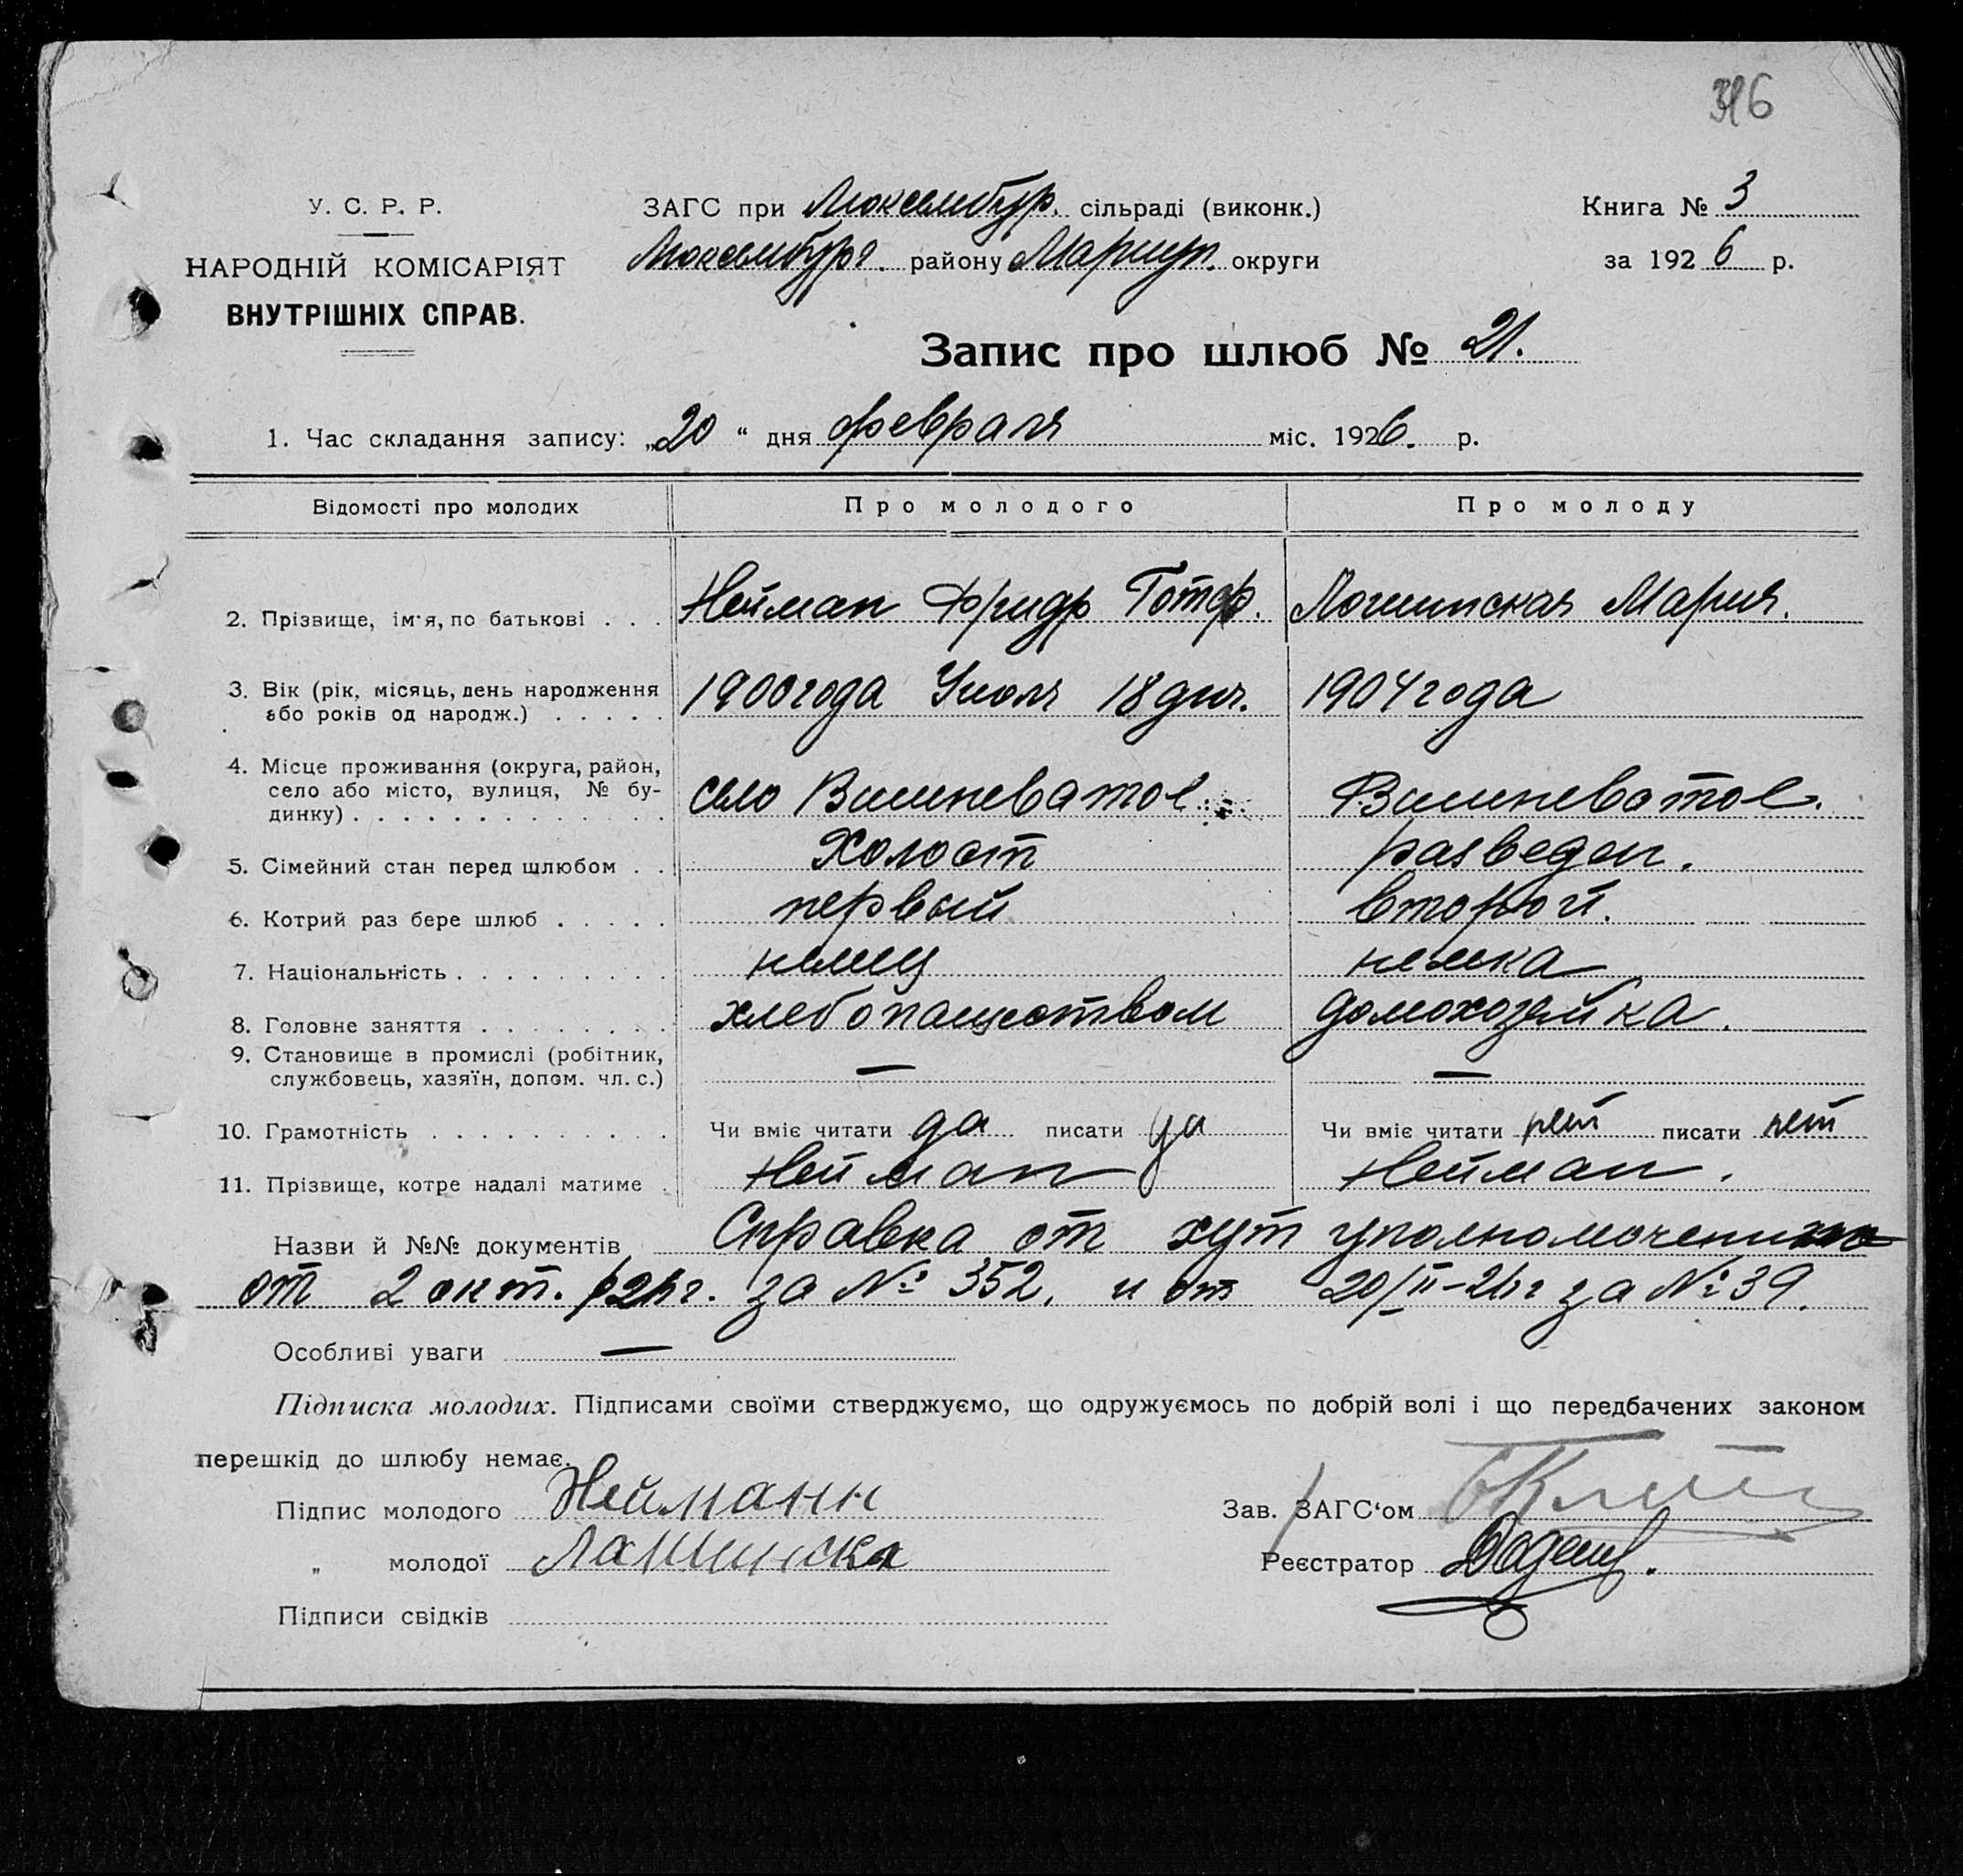 316
У. С. Р. Р.
НАРОДНІЙ КОМІСАРІЯТ
ВНУТРІШНІХ СПРАВ.
ЗАГС при Люксембур. сільраді (виконк.)
Люксембург. району Мариуп. округи
Книга № 3
за 1926 р.
Запис про шлюб № 21.
1. Час складання запису: „20“ дня февраля міс. 1926. р.
Відомості про молодих Про молодого Про молоду
2. Прізвище, ім'я, по батькові . . . Нейман Фридр Готф. Логшинская Мария.
3. Вік (рік, місяць, день народження 1900 года Июля 18 дня. 1904 года
або років од народж.) . . . . .
4. Місце проживання (округа, район,
село або місто, вулиця, № бу- село Вишневатое Вишневатое.
динку) . . . . . . . . . . . . .
5. Сімейний стан перед шлюбом . . Холост разведен.
6. Котрий раз бере шлюб . . . . . первый второй.
7. Національність . . . . . . . . . немец немка
8. Головне заняття . . . . . . . . хлебопашеством домохозяйка.
9. Становище в промислі (робітник, — —
службовець, хазяїн, допом. чл. с.)
10. Грамотність . . . . . . . . . . Чи вміє читати да писати да Чи вміє читати нет писати нет
11. Прізвище, котре надалі матиме . Нейман Нейман.
Назви й №№ документів Справка от хут уполномочени
от 2 окт. 2 г. за № 352, и от 20/II-26 г за № 39.
Особливі уваги —
Підписка молодих. Підписами своїми стверджуємо, що одружуємось по добрій волі і що передбачених законом
перешкід до шлюбу немає.
Підпис молодого Нейманн Зав. ЗАГС‘ом
„ молодої Лашинска Реєстратор
Підписи свідків